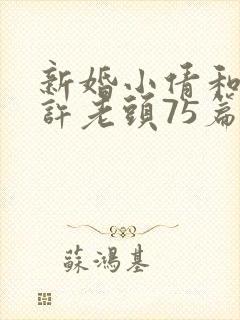 新婚小倩和
許老頭75篇
蘇鴻基